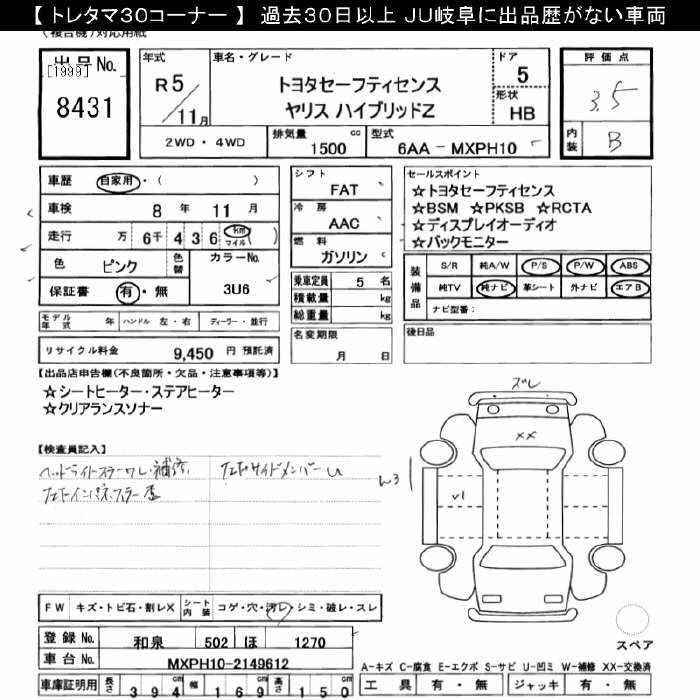 【 トレタマ30コーナー 】 過去30日以上 JU岐阜に出品歴がない車両
(複合機)対応用紙
出品No.
[1999]
8431
年式
R5/11月
車名・グレード
トヨタセーフティセンス
ヤリス ハイブリッドZ
ドア
5
形状
HB
2WD・4WD
排気量 cc
1500
型式
6AA - MXPH10
評価点
3.5
内装
B
車歴 自家用・( )
車検 8 年 11 月
走行 万 6千 4 3 6 km マイル ( )
色 ピンク 色替 カラーNo.
保証書 有・無 3U6
モデル年式 年 ハンドル 左・右 ディーラー・並行
リサイクル料金 9,450 円 預託済
シフト
FAT
冷房
AAC
燃料
ガソリン
乗車定員 5 名
積載量 kg
総重量 kg
名変期限
月 日
セールスポイント
☆トヨタセーフティセンス
☆BSM ☆PKSB ☆RCTA
☆ディスプレイオーディオ
☆バックモニター
装備品
S/R 純A/W P/S P/W ABS
純TV 純ナビ 革シート 外ナビ エアB
ナビ型番:
後日品
【出品店申告欄(不良箇所・欠品・注意事項等)】
☆シートヒーター・ステアヒーター
☆クリアランスソナー
【検査員記入】
ヘッドライトステーワレ・補修
左フロントサイドメンバーU
ズレ
XX
W3
V1
FW キズ・トビ石・割レX シート内装 コゲ・穴・汚レ・シミ・破レ・スレ
登録 No. 和泉 502 ほ 1270
車台 No. MXPH10-2149612
車庫証明用 長さ 394 cm 幅 169 cm 高さ 150 cm
スペア
A-キズ C-腐食 E-エクボ S-サビ U-凹ミ W-補修 XX-交換済
工具 有・無 ジャッキ 有・無